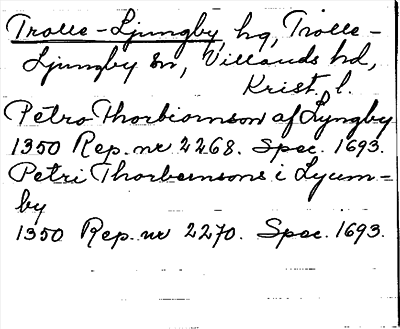 Trolle-Ljungby, hg, Trolle-
Ljungby sn, Villands hd,
Krist. l.
Petro Thorbiornson af Lyngby
1350 Rep. nr 2268. Spec. 1693.
Petri Thorbernsons i Lyum-
by
1350 Rep. nr 2270. Spec. 1693.